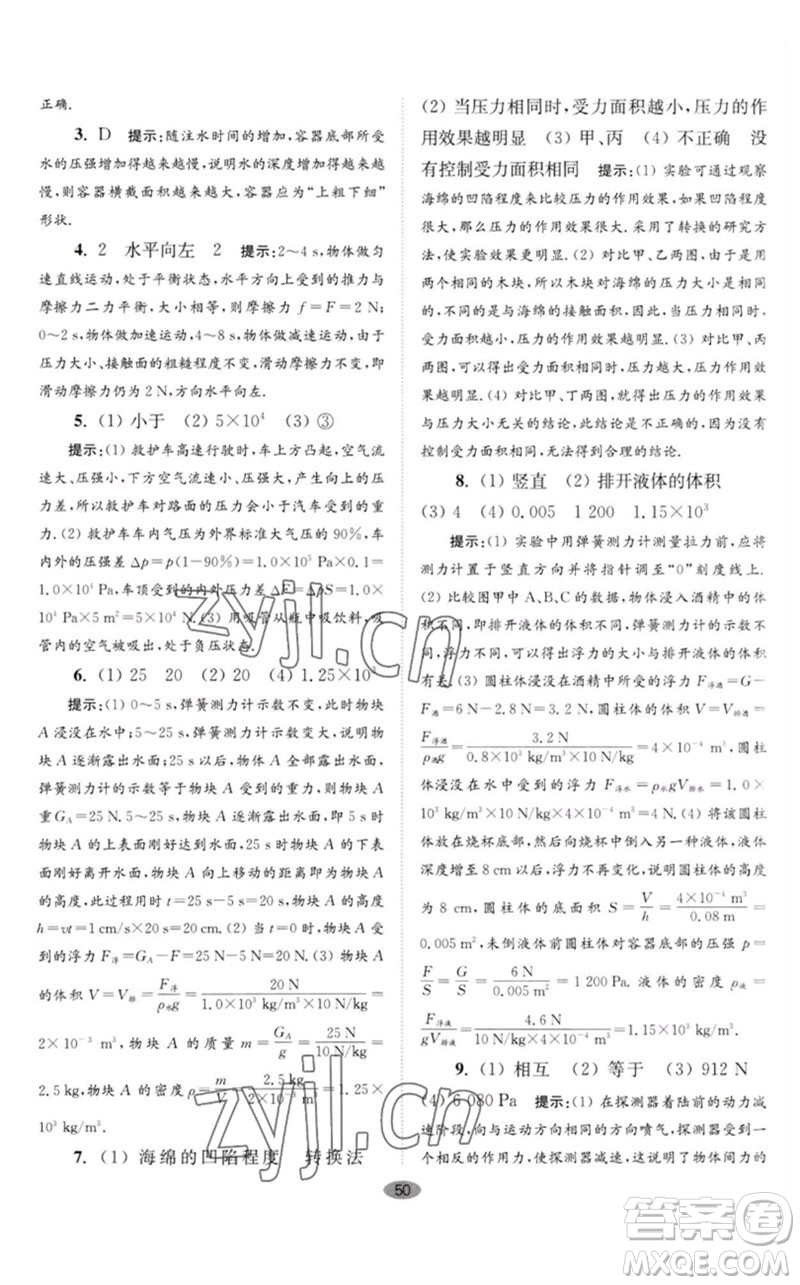 正确.
3. D 提示:随注水时间的增加,容器底部所受
的压强增加得越来越慢,说明水的深度增加得越来
越慢,则容器横截面积越来越大,容器应为“上粗下细”
形状.
4. 2 水平向左 2 提示:2～4 s,物体做匀
速直线运动,处于平衡状态,水平方向受到的推力与
摩擦力二力平衡,大小相等,则摩擦力 f=F=2 N;
0～2 s,物体做加速运动,4～8 s,物体做减速运动,由于
压力大小、接触面的粗糙程度不变,滑动摩擦力不变,即
滑动摩擦力仍为 2 N,方向水平向左.
5. (1) 小于 (2) 5×10⁴ (3) ③
提示:(1) 救护车高速行驶时,车上方凸起,空气流
速大、压强小,下方空气流速小、压强大,产生向上的压
力差,所以救护车对路面的压力会小于汽车受到的重
力.(2) 救护车车内气压为外界标准大气压的 90%,车
内外的压强差 Δp=p(1-90%)=1.0×10⁵ Pa×0.1=
1.0×10⁴ Pa,车顶受到的内外压力差 ΔF=ΔpS=1.0×
10⁴ Pa×5 m²=5×10⁴ N.(3) 用吸管从瓶中吸饮料,吸
管内的空气被吸出,处于负压状态.
6. (1) 25 20 (2) 20 (4) 1.25×10³
提示:(1) 0～5 s,弹簧测力计示数不变,此时物块
A 浸没在水中;5～25 s,弹簧测力计示数变大,说明物
块 A 逐渐露出水面;25 s 以后,物体 A 全部露出水面,
弹簧测力计的示数等于物块 A 的重力,即物块 A
重 G_A=25 N.5～25 s,物块 A 逐渐露出水面,即 5 s 时
物块 A 的上表面刚好到达水面,25 s 时物块 A 的下表
面刚好离开水面,物块 A 向上移动的距离即为物块 A
的高度,此过程用时 t=25 s-5 s=20 s,物块 A 的高度
h=vt=1 cm/s×20 s=20 cm.(2) 当 t=0 时,物块 A 受
到的浮力 F浮=G_A-F=25 N-5 N=20 N.(3) 物块 A
的体积 V=V排=F浮/ρ水g=20 N/1.0×10³ kg/m³×10 N/kg=
2×10⁻³ m³,物块 A 的质量 m=G_A/g=25 N/10 N/kg=
2.5 kg,物块 A 的密度 ρ=m/V=2.5 kg/2×10⁻³ m³=1.25×
10³ kg/m³.
7. (1) 海绵的凹陷程度 转换法
(2) 当压力相同时,受力面积越小,压力的作
用效果越明显 (3) 甲、丙 (4) 不正确 没
有控制受力面积相同 提示:(1) 实验可通过观察
海绵的凹陷程度来比较压力的作用效果,如果凹陷程
度很大,那么压力的作用效果明显.采用了转换的研究方
法.(2) 对比甲、乙两图,甲图用了一个木块,乙图用了
两个相同的木块,所以木块对海绵的压力大小是相同
的,不同的是与海绵的接触面积,因此,当压力相同时,
受力面积越小,压力的作用效果越明显.(3) 对比甲、丙
两图,可以得出受力面积相同时,压力越大,压力的作用
效果越明显.(4) 对比甲、丁两图,就得出压力的作用效
果与压力大小无关的结论,此结论是不正确的,因为没有
控制受力面积相同,无法得到合理的结论.
8. (1) 竖直 (2) 排开液体的体积
(3) 4 (4) 0.005 1 200 1.15×10³
提示:(1) 实验中用弹簧测力计测量拉力前,应将
测力计置于竖直方向并将指针调至“0”刻度线上.
(2) 比较图甲中 A、B、C 的数据,物体浸入酒精中的体
积不同,即排开液体的体积不同,弹簧测力计的示数不
同,浮力不同,所以浮力大小与物体排开液体的体积
有关.(3) 圆柱体浸没在酒精中所受的浮力 F浮酒=G-
F酒=6 N-2.8 N=3.2 N,圆柱体的体积 V=V排酒=
F浮酒/ρ酒g=3.2 N/0.8×10³ kg/m³×10 N/kg=4×10⁻⁴ m³,圆柱
体浸没在水中受到的浮力 F浮水=ρ水gV排水=1.0×
10³ kg/m³×10 N/kg×4×10⁻⁴ m³=4 N.(4) 将该圆柱
体放在烧杯底部,然后向烧杯中倒入另一种液体,液体
深度增至 8 cm 以后,浮力不变,所以圆柱体的高度
为 8 cm,圆柱体的底面积 S=V/h=4×10⁻⁴ m³/0.08 m=
0.005 m²,未倒液体前圆柱体对容器底部的压强 p=
F/S=G/S=6 N/0.005 m²=1 200 Pa.液体的密度 ρ液=
F浮液/gV排液=4.6 N/10 N/kg×4×10⁻⁴ m³=1.15×10³ kg/m³.
9. (1) 相互 (2) 等于 (3) 912 N
(4) 6 080 Pa 提示:(1) 在探测器着陆前的动力减
速阶段,向与运动方向相同的方向喷气,探测器受到一
个相反的作用力,使探测器减速,这说明物体间力的
50
zyjl.cn
zyjl.cn
答案卷
MXQE.COM